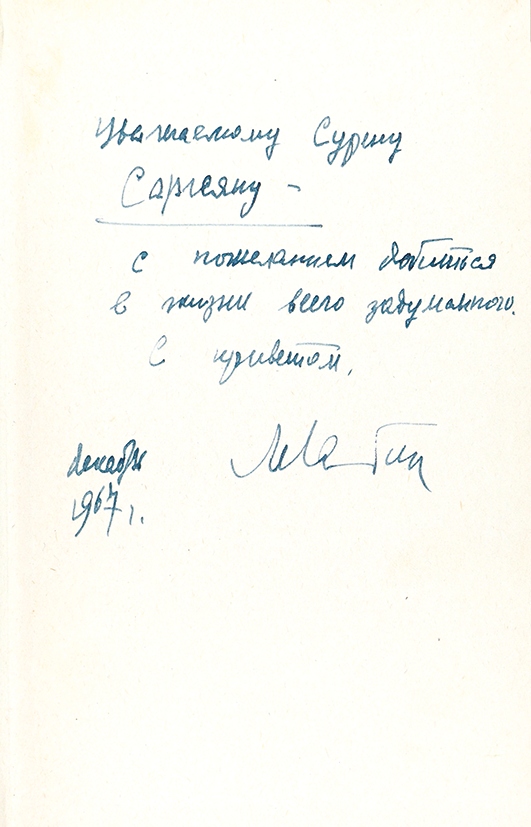 Уважаемому Сурену
Саргсяну -
с пожеланием добиться
в жизни всего задуманного.
С приветом,
декабрь
1967 г.